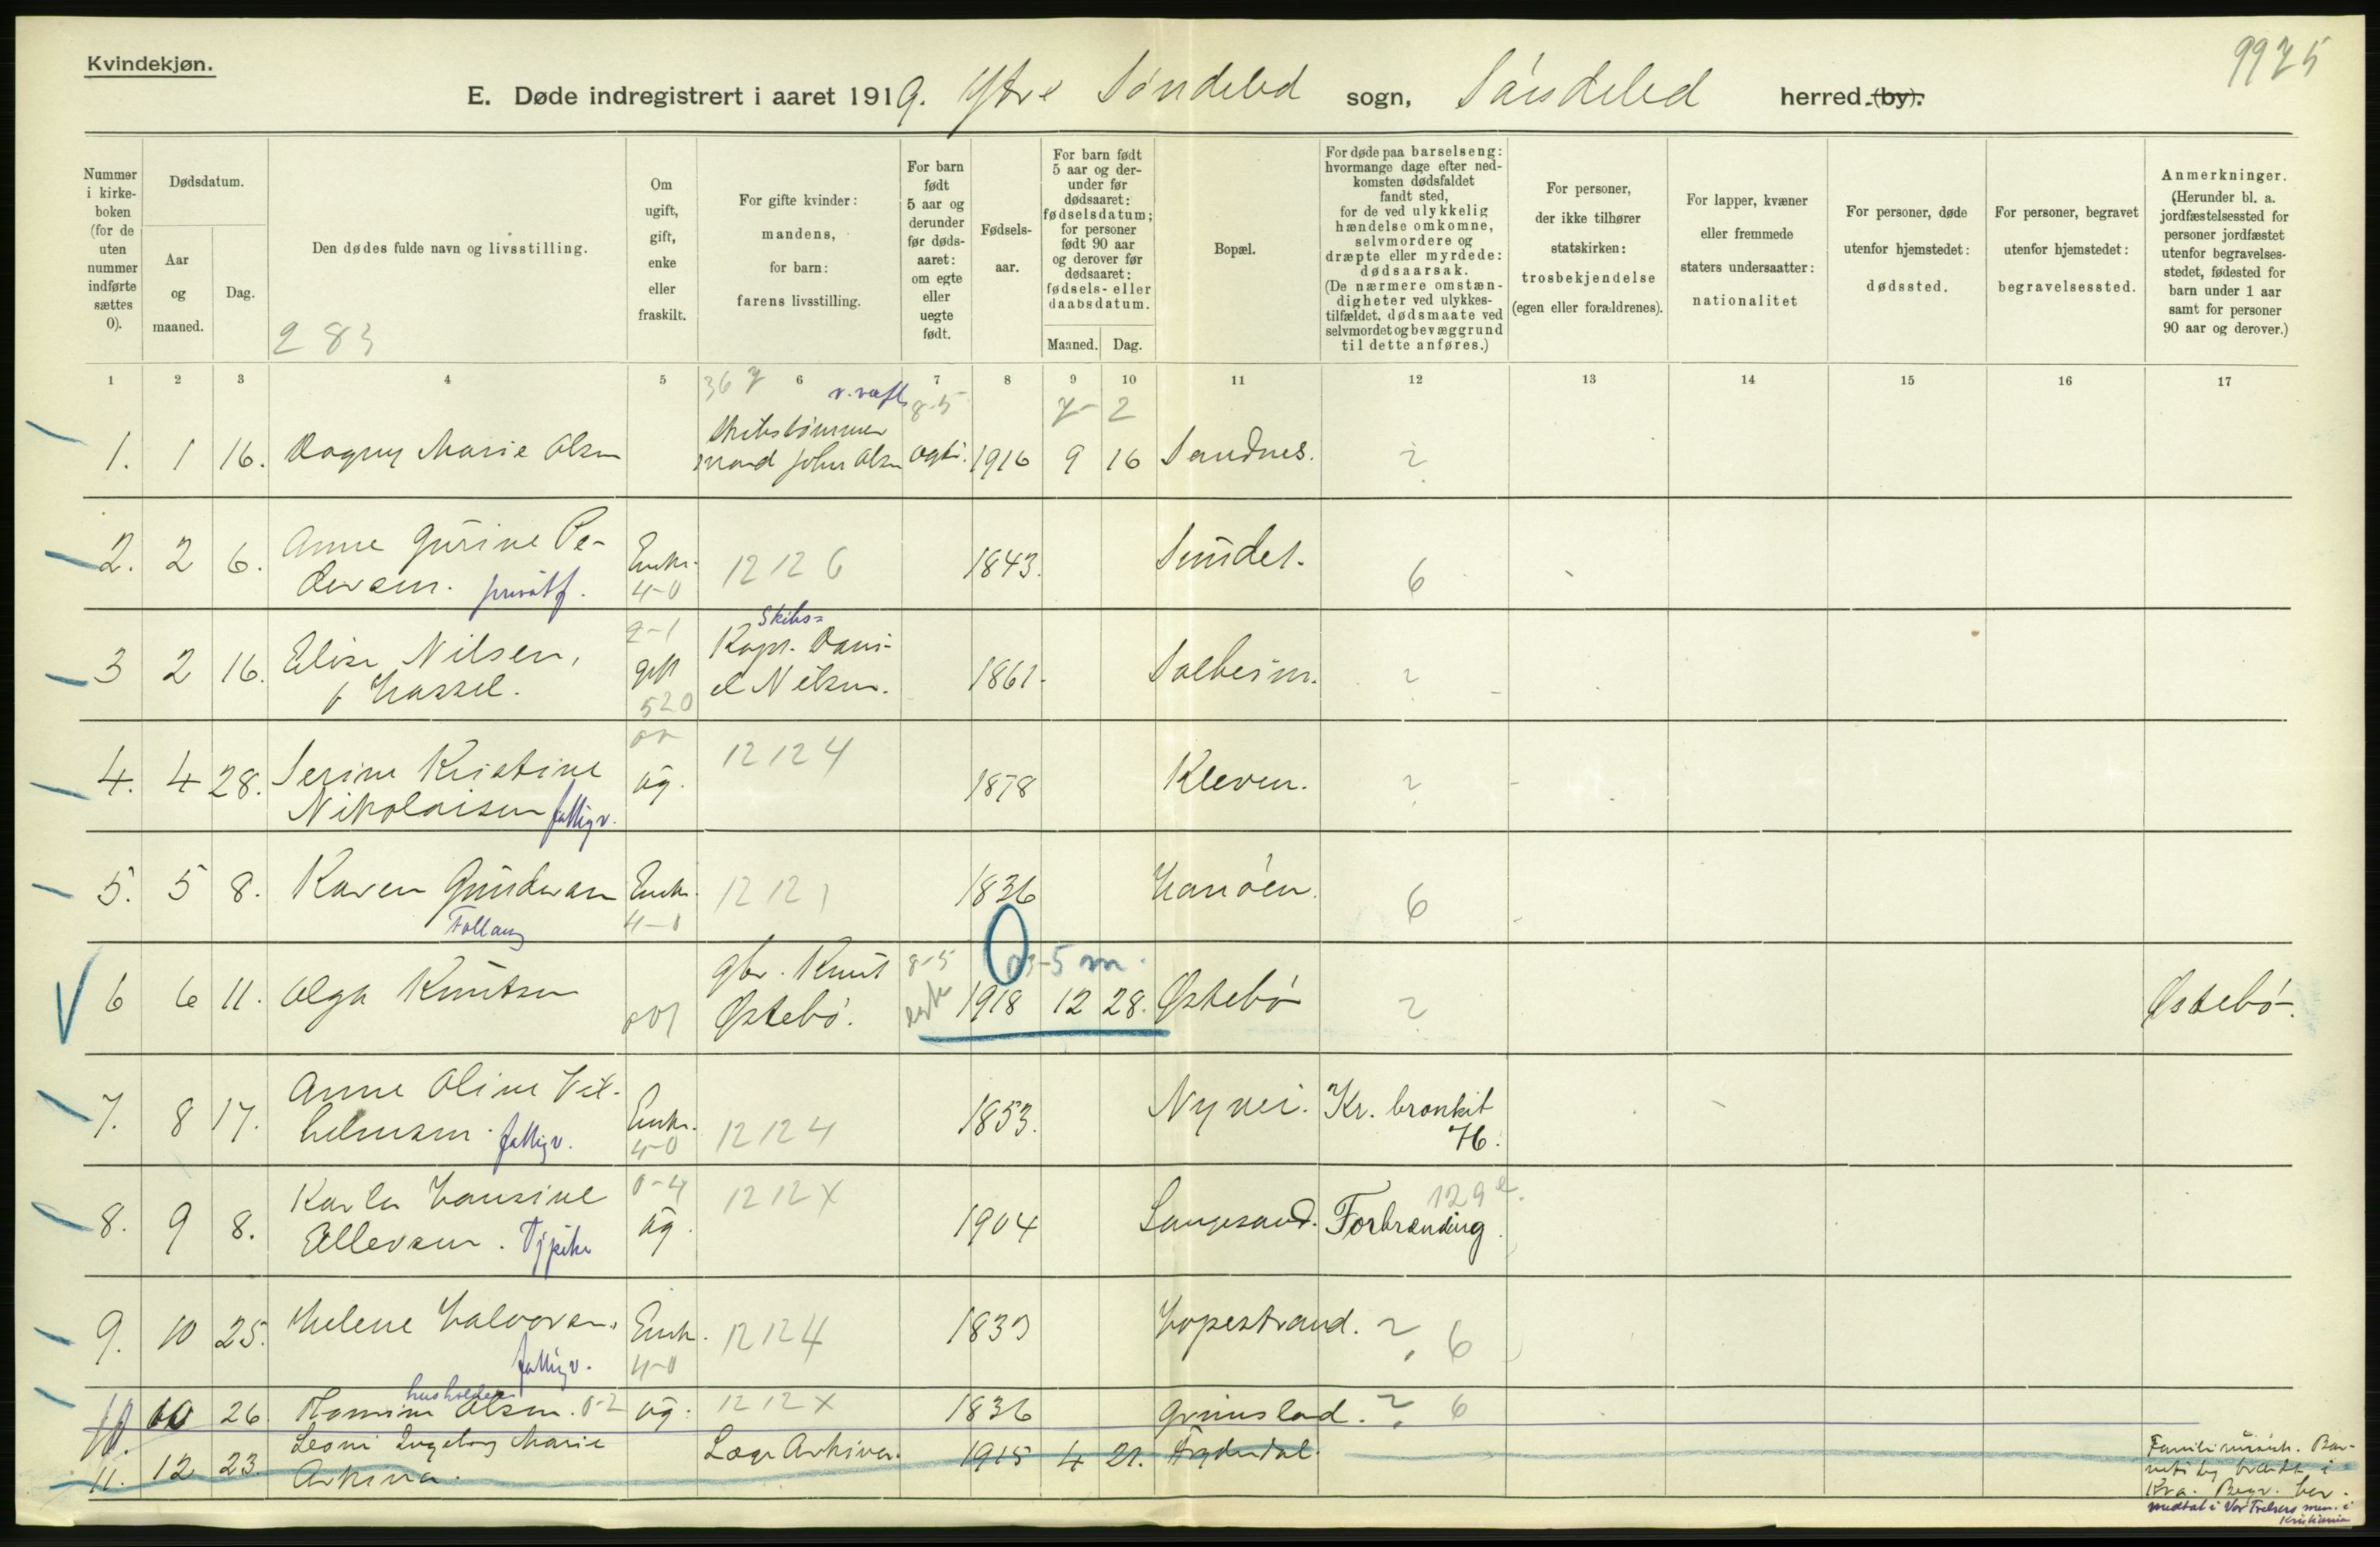 Kvindekjøn.
9975
E. Døde indregistrert i aaret 1919. Ytre Søndeled sogn, Søndeled herred (by).
Nummer i kirkeboken (for de uten nummer indførte sættes 0).
Dødsdatum.
Aar og maaned.
Dag.
Den dødes fulde navn og livsstilling.
283
Om ugift, gift, enke eller fraskilt.
For gifte kvinder: mandens, for barn: farens livsstilling.
For barn født 5 aar og derunder før dødsaaret: om egte eller uegte født.
Fødselsaar.
For barn født 5 aar og derunder før dødsaaret: fødselsdatum; for personer født 90 aar og derover før dødsaaret: fødsels- eller daabsdatum.
Maaned. Dag.
Bopæl.
For døde paa barselseng: hvormange dage efter nedkomsten dødsfaldet fandt sted, for de ved ulykkelig hændelse omkomne, selvmordere og dræpte eller myrdede: dødsaarsak. (De nærmere omstændigheter ved ulykkestilfældet, dødsmaate ved selvmordet og bevæggrund til dette anføres.)
For personer, der ikke tilhører statskirken: trosbekjendelse (egen eller forældrenes).
For lapper, kvæner eller fremmede staters undersaatter: nationalitet
For personer, døde utenfor hjemstedet: dødssted.
For personer, begravet utenfor hjemstedet: begravelsessted.
Anmerkninger. (Herunder bl. a. jordfæstelsessted for personer jordfæstet utenfor begravelsesstedet, fødested for barn under 1 aar samt for personer 90 aar og derover.)
1 2 3 4 5 6 7 8 9 10 11 12 13 14 15 16 17
367 8-5 7-2
1. 1 16. Dagny Marie Olsen Skibstømmermand John Olsen ægte. 1916 9 16 Sandnes. ?
2. 2 6. Anne Gurine Pe-
dersen. privatf. Enke. 4-0 12 12 6 1843. Sundet. 6
3 2 16. Elise Nilsen,
f. Hassel. 2-1 gift 520 Skibs= Kapt. Dani-
el Nilsen. 1861. Solheim. ?
4. 4 28. Serine Kristine
Nikolaisen fattigv. ug. 12 12 4 1878 Kleven. ?
5. 5 8. Karen Gundersen
Follaug Enke. 4-0 12 12 1 1836 Hanøen. 6
6 6 11. Olga Knutsen gbr. Knut
Østebø. 8-5 egte 5 m. 1918 12 28. Østebø ? Østebø.
7. 8 17. Anne Oline Vil-
helmsen. fattigv. Enke. 4-0 12 12 4 1853. Nyvei. Kr. bronkit
8. 9 8. Karla Hansine
Ellevsen. Tjpike 0-4 ug. 12 12 X 1904 Langesand. Forbrænding. 129
9. 10 25. Helene Halvorsen.
fattigv. Enke. 4-0 12 12 4 1833 Hopestrand. ? 6
10. 10 26. Olsen. 0-2 ug. 12 12 X 1836 Grimsland. ? 6
11. 12 23. Leoni Ingeborg Marie
Arkiva. Læge 1915 4 21.
Kra. Begr. her.
medtat i Vor Frelsers men. i
Kristiania